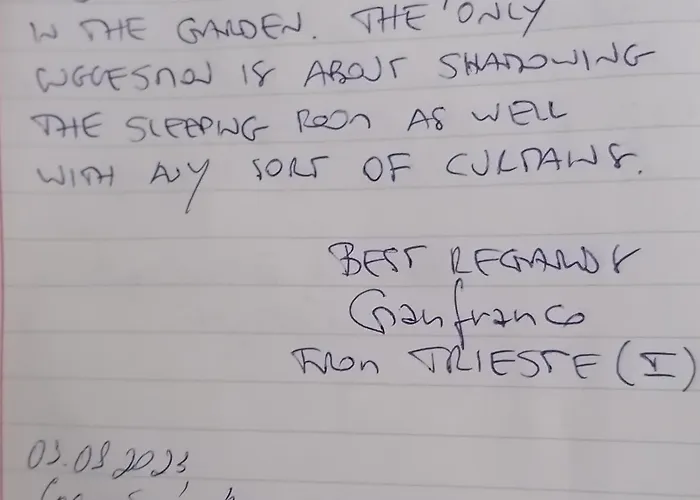 IN THE GARDEN. THE ONLY
SUGGESTION IS ABOUT SHADOWING
THE SLEEPING ROOM AS WELL
WITH ANY SORT OF CURTAINS.
BEST REGARDS
Gianfranco
FROM TRIESTE (I)
03.08.2023